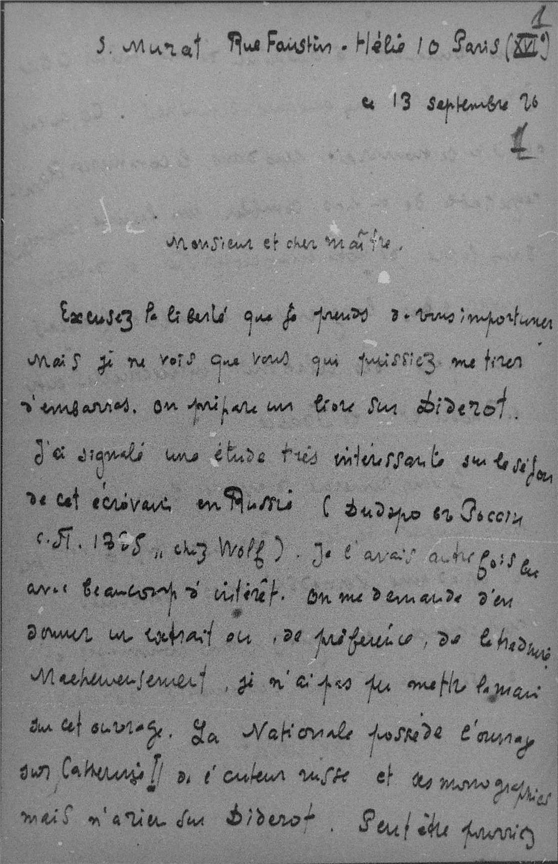 1
S. Murat Rue Faustin-Hélie 10 Paris (XVIe)
ce 13 septembre 26
1
Monsieur et cher maître.
Excusez la liberté que je prends de vous importuner
mais je ne vois que vous qui puissiez me tirer
d'embarras. On prépare un livre sur Diderot.
J'ai signalé une étude très intéressante sur le séjour
de cet écrivain en Russie (
chez Wolf). Je l'avais autrefois lu
avec beaucoup d'intérêt. On me demande d'en
donner un extrait ou, de préférence, de le traduire
Malheureusement, je n'ai pas pu mettre la main
sur cet ouvrage. La Nationale possède l'ouvrage
sur Catherine II de l'auteur russe et ces monographies
mais n'a rien sur Diderot. Peut être pourriez